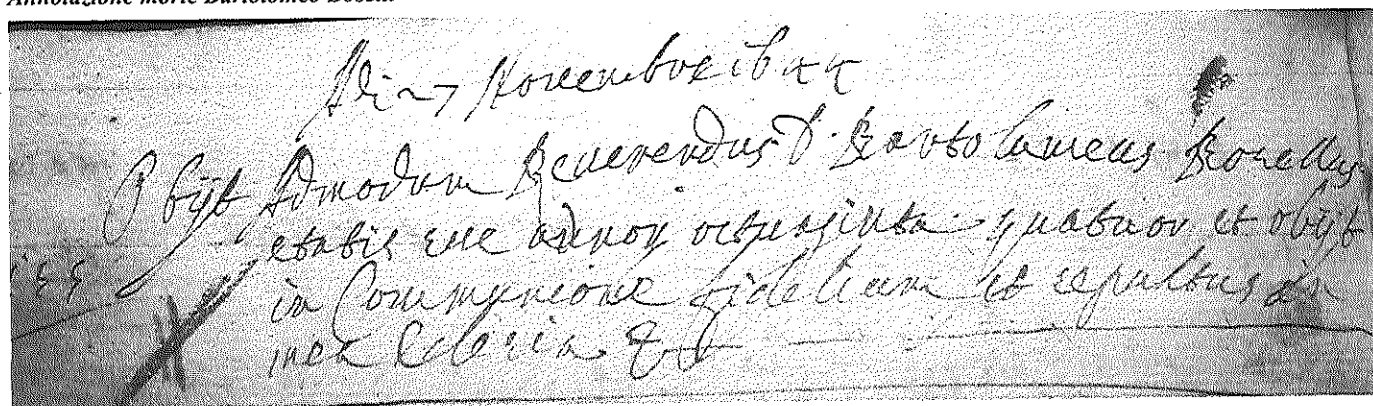 Annotazione morte Bartolomeo
Adi 7 Novembre
Obijt Admodum Reverendus D. Bartolameus
etatis sue annor octuaginta quatuor et obijt
in Communione fidelium et sepultus in
mea Eclesia